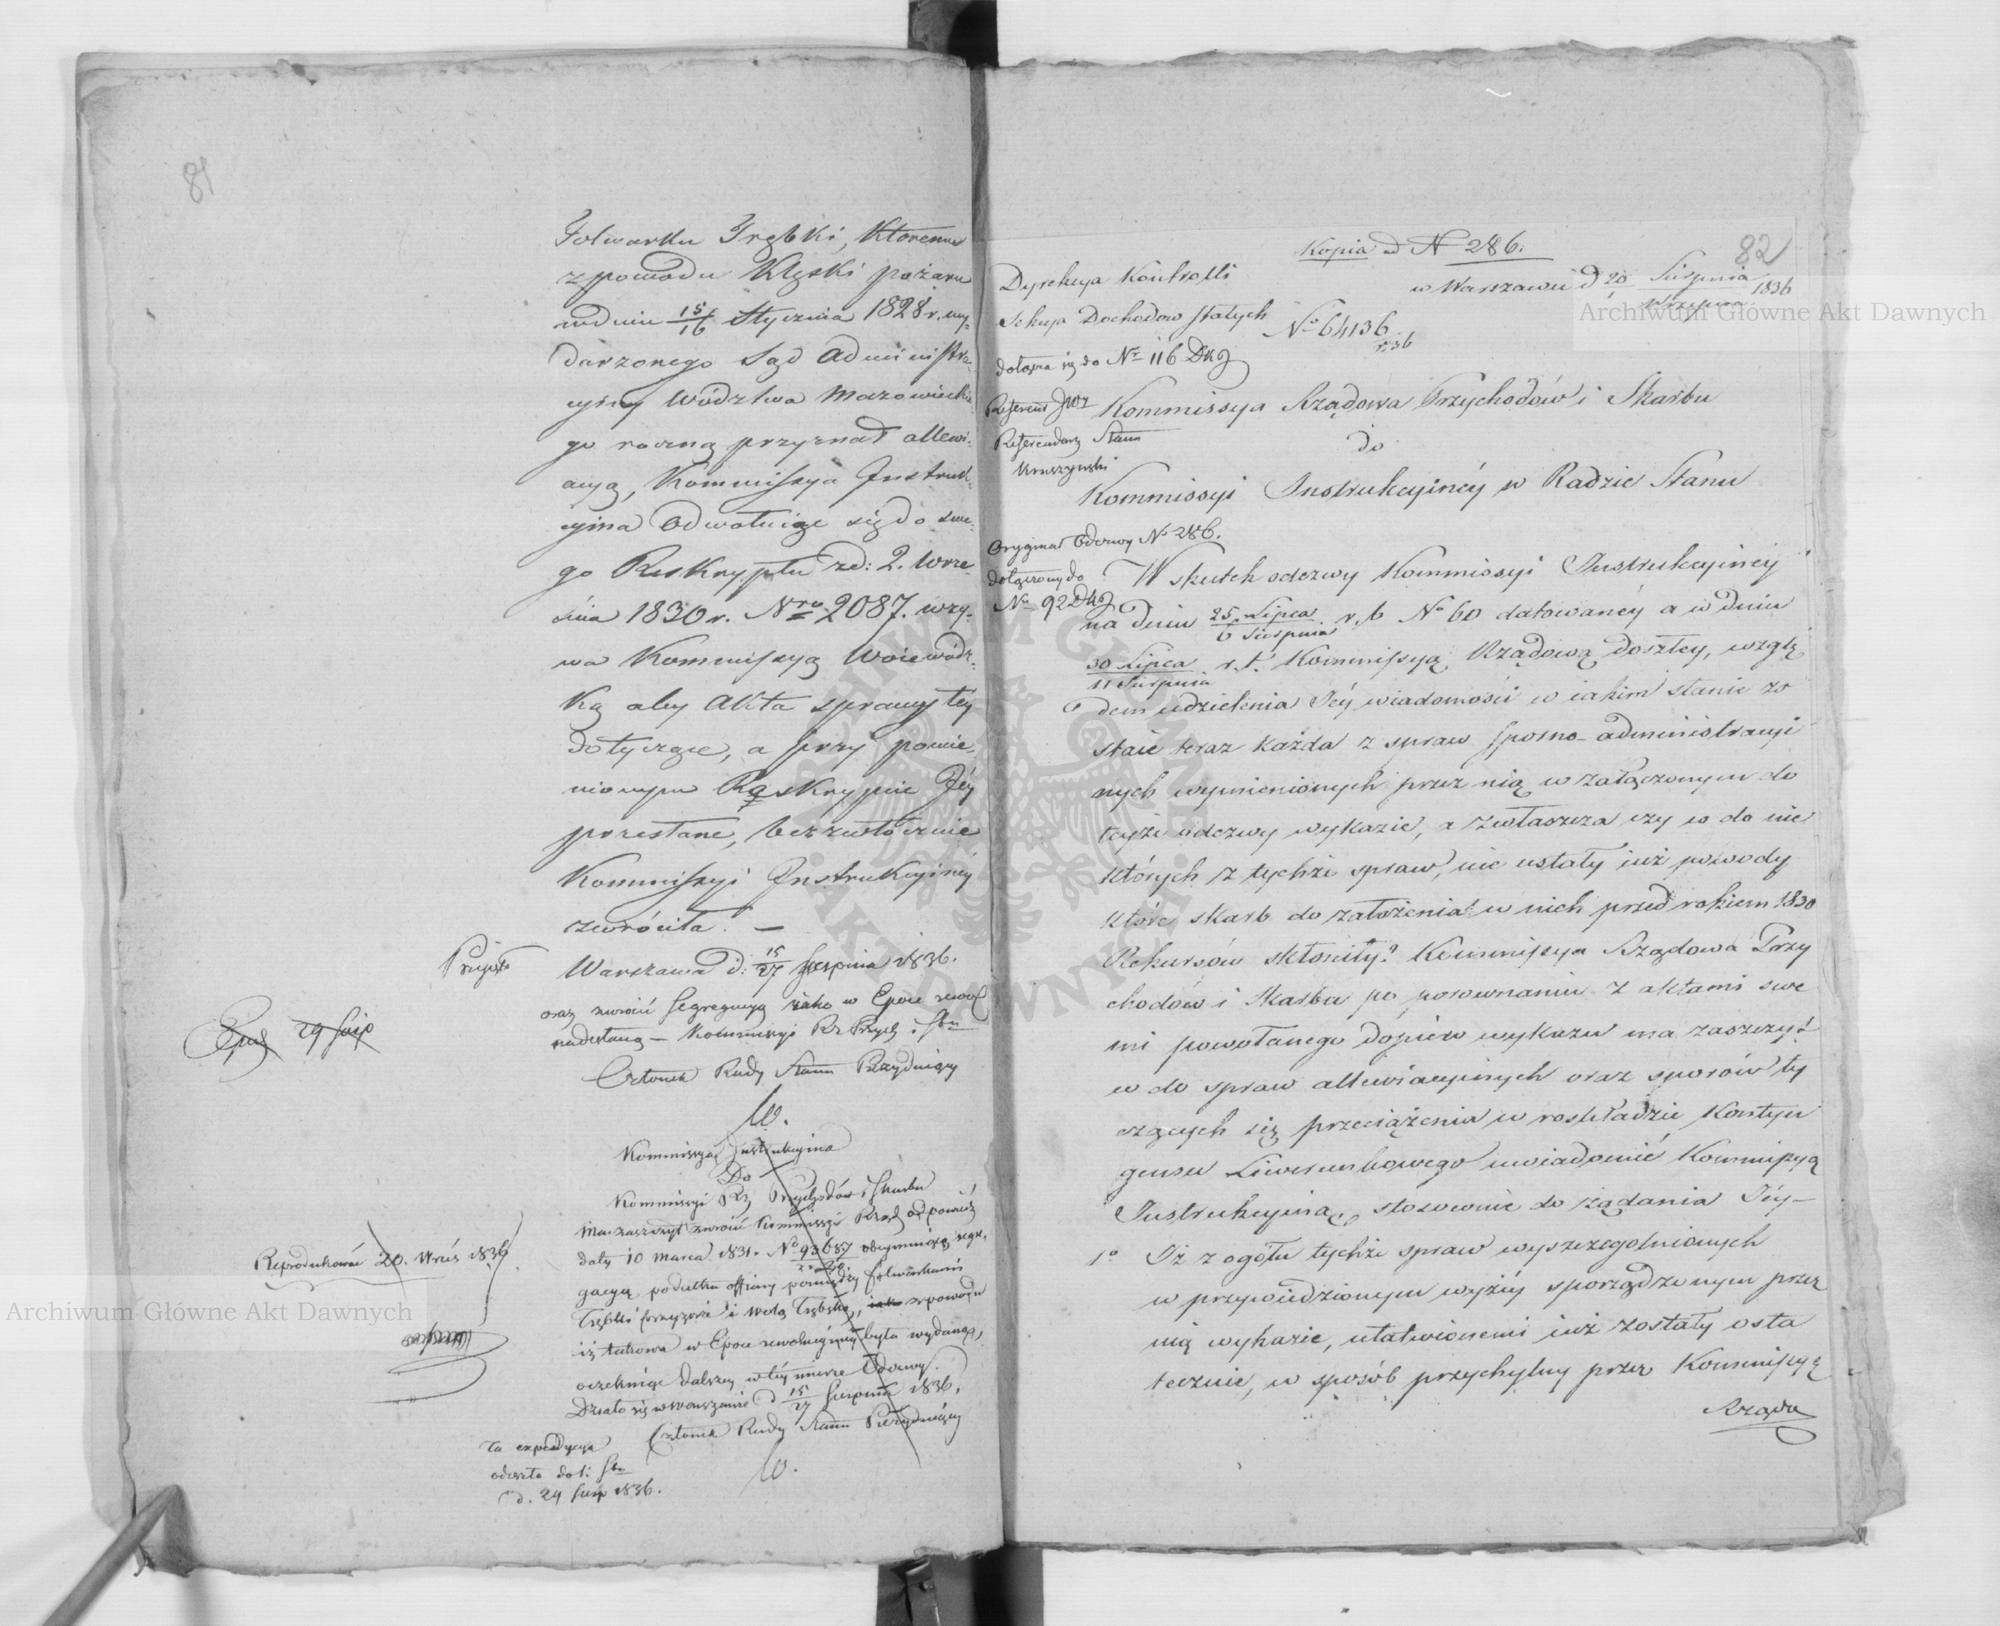 81
Folwarku Trębki, ktoremu
z powodu klęski pożaru
w dniu 15/16 Stycznia 1828 r. wy-
darzonego Sąd Administra-
cyiny Wództwa Mazowieckie-
go roczną przyznał allewi-
acyą, Kommissya Instruk-
cyina odwołuiąc się do swe-
go Reskryptu z d: 2. Wrze-
śnia 1830 r. Nro 2087. wzy-
wa Kommissyą Woiewódz-
ką aby Akta sprawy téy
dotyczące, a przy pomie-
nionym Reskrypcie Jéy
przesłane, bezzwłocznie
Kommissyi Instrukcyinéy
zwróciła. —
Warszawa d: 15/27 Sierpnia 1836.
oraz zwrócić segregacyą iako w Epoce rewol
nadesłaną — Kommissyi Rz Przych i Sbu
Członek Rady Stanu Prezyduiący
W.
Kommissya Instrukcyina
Do
Kommissyi Rz Przychodów i Skarbu
Ma zaszczyt zwrócić Kommissyi Rząd odpowiedź
daty 10 Marca 1831 r. No 93687 obeymuiącą segre-
gacyą podatku ofiary pomiędzy folwarkami
Trębki i Wola Trębska, iako z powodu
iż takowa w Epoce rewolucyinéy była wydaną,
oczekuiąc dalszey w téy mierze Odezwy.
Działo się w Warszawie d 15/27 Sierpnia 1836.
Członek Rady Stanu Prezyduiący
W.
29 Sierp
Reprodukować 20. Wrześ 1836
Ta expedycya
odeszła do K: Sbu
d. 24 Sierp 1836.
82
Kopia ad N 286.
w Warszawie d 20 Sierpnia / 1 Września 1836
Dyrekcya Kontrolli
Sekcya Dochodow stałych
No 64136
r. 36
dołącza się do Nr 116 DKJ
Referent JWz
Referendarz Stanu
Kruszyński
Kommissya Rządowa Przychodów i Skarbu
do
Kommissyi Instrukcyinéy w Radzie Stanu
Oryginał Odezwy No 286.
dołączony do
No 92 DKJ
W skutek odezwy Kommissyi Instrukcyinéy
na dniu 25 Lipca / 6 Sierpnia r. b No 60 datowanéy a w dniu
30 Lipca / 11 Sierpnia r. t. Kommissyą Rządową doszłey, wzglę
dem udzielenia Jéy wiadomości w iakim stanie zo
staie teraz każda z spraw sporno-administracyi
nych wymienionych przez nią w załączonym do
teyże odezwy wykazie, a zwłaszcza czy co do nie
których z tychże spraw, nie ustały iuż powody
które skarb do założenia w nich przed rokiem 1830
Rekursów skłoniły? Kommissya Rządowa Przy
chodów i Skarbu po porownaniu z aktami swe
mi powołanego dopiero wykazu ma zaszczyt
co do spraw allewiacyinych oraz sporów ty
czących się przeciążenia w roskładzie Kontyn
gensu Liwerunkowego uwiadomić Kommissyą
Instrukcyiną, stosownie do żądania Jéy —
1o Iż z ogółu tychże spraw wyszczegolnionych
w przywiedzionym wyżéy sporządzonym przez
nią wykazie, ułatwionemi iuż zostały osta
tecznie, w sposób przychylny przez Kommissyą
Rządo